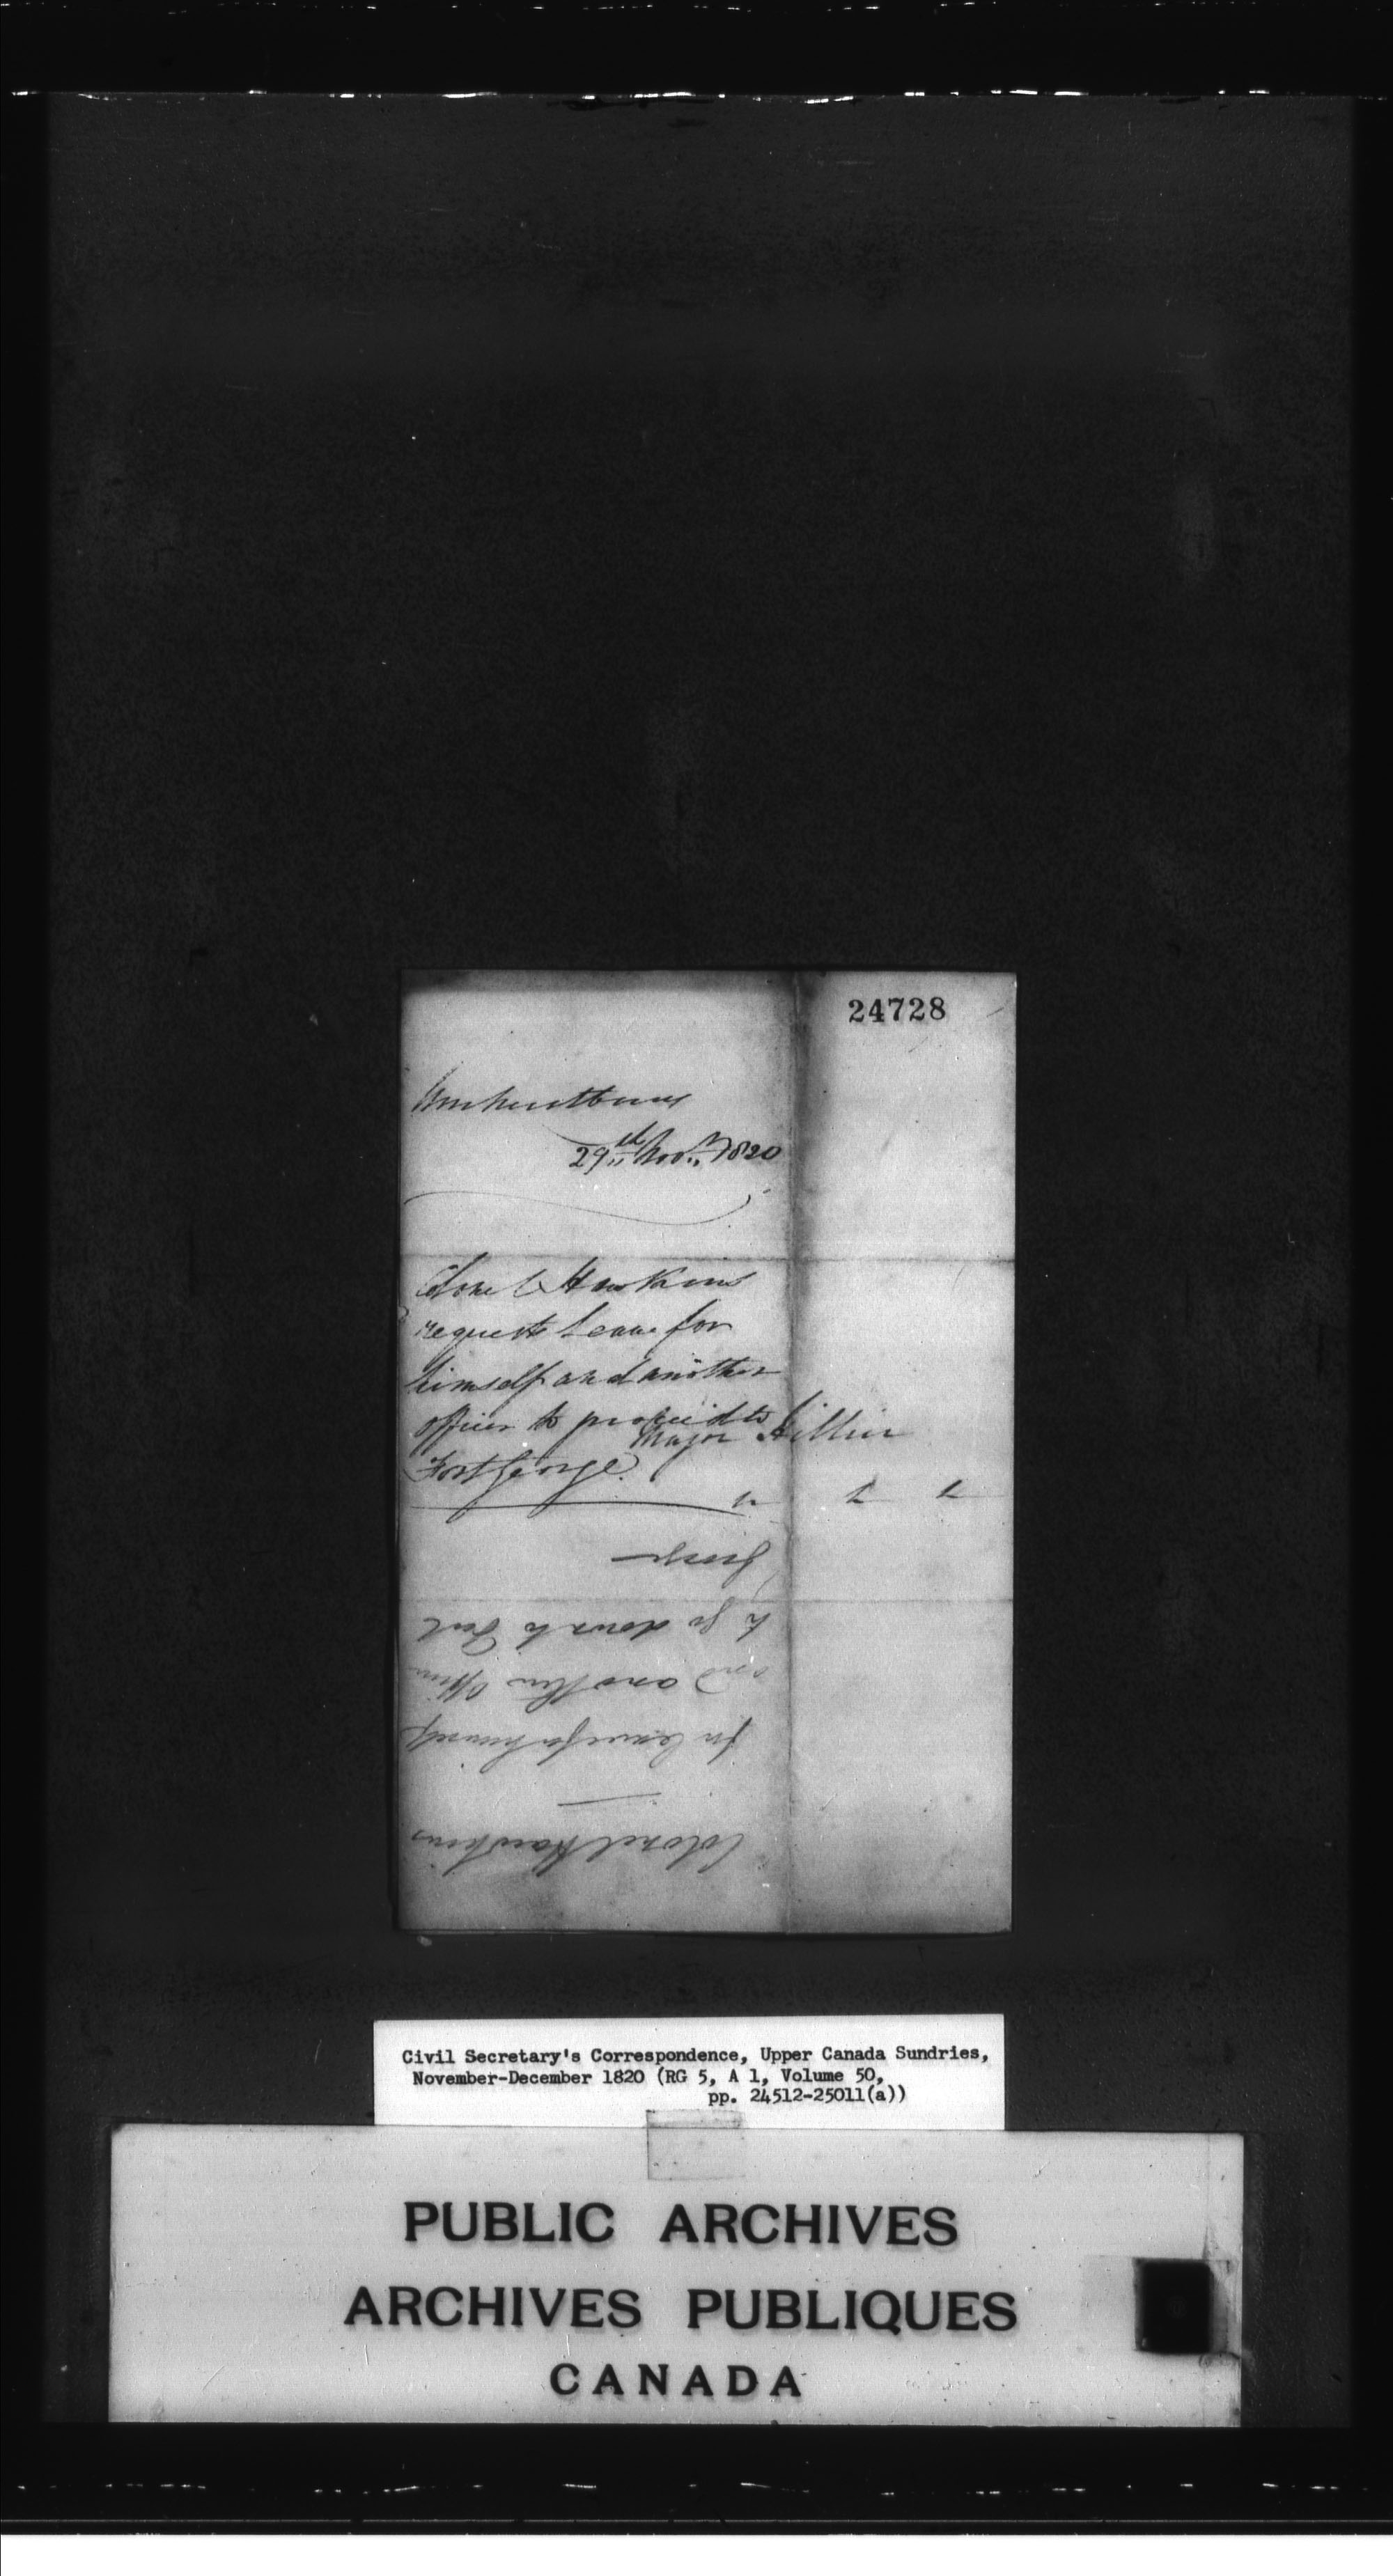 24728
Amherstburg
29th Novr 1820
Colonel Hawkins
requests Leave for
himself and another
officer to proceed to
Fort George.
Major Hillier
George
to go down to Fort
and another Officer
for leave for himself
Colonel Hawkins
Civil Secretary's Correspondence, Upper Canada Sundries,
November-December 1820 (RG 5, A 1, Volume 50,
pp. 24512-25011(a))
PUBLIC ARCHIVES
ARCHIVES PUBLIQUES
CANADA